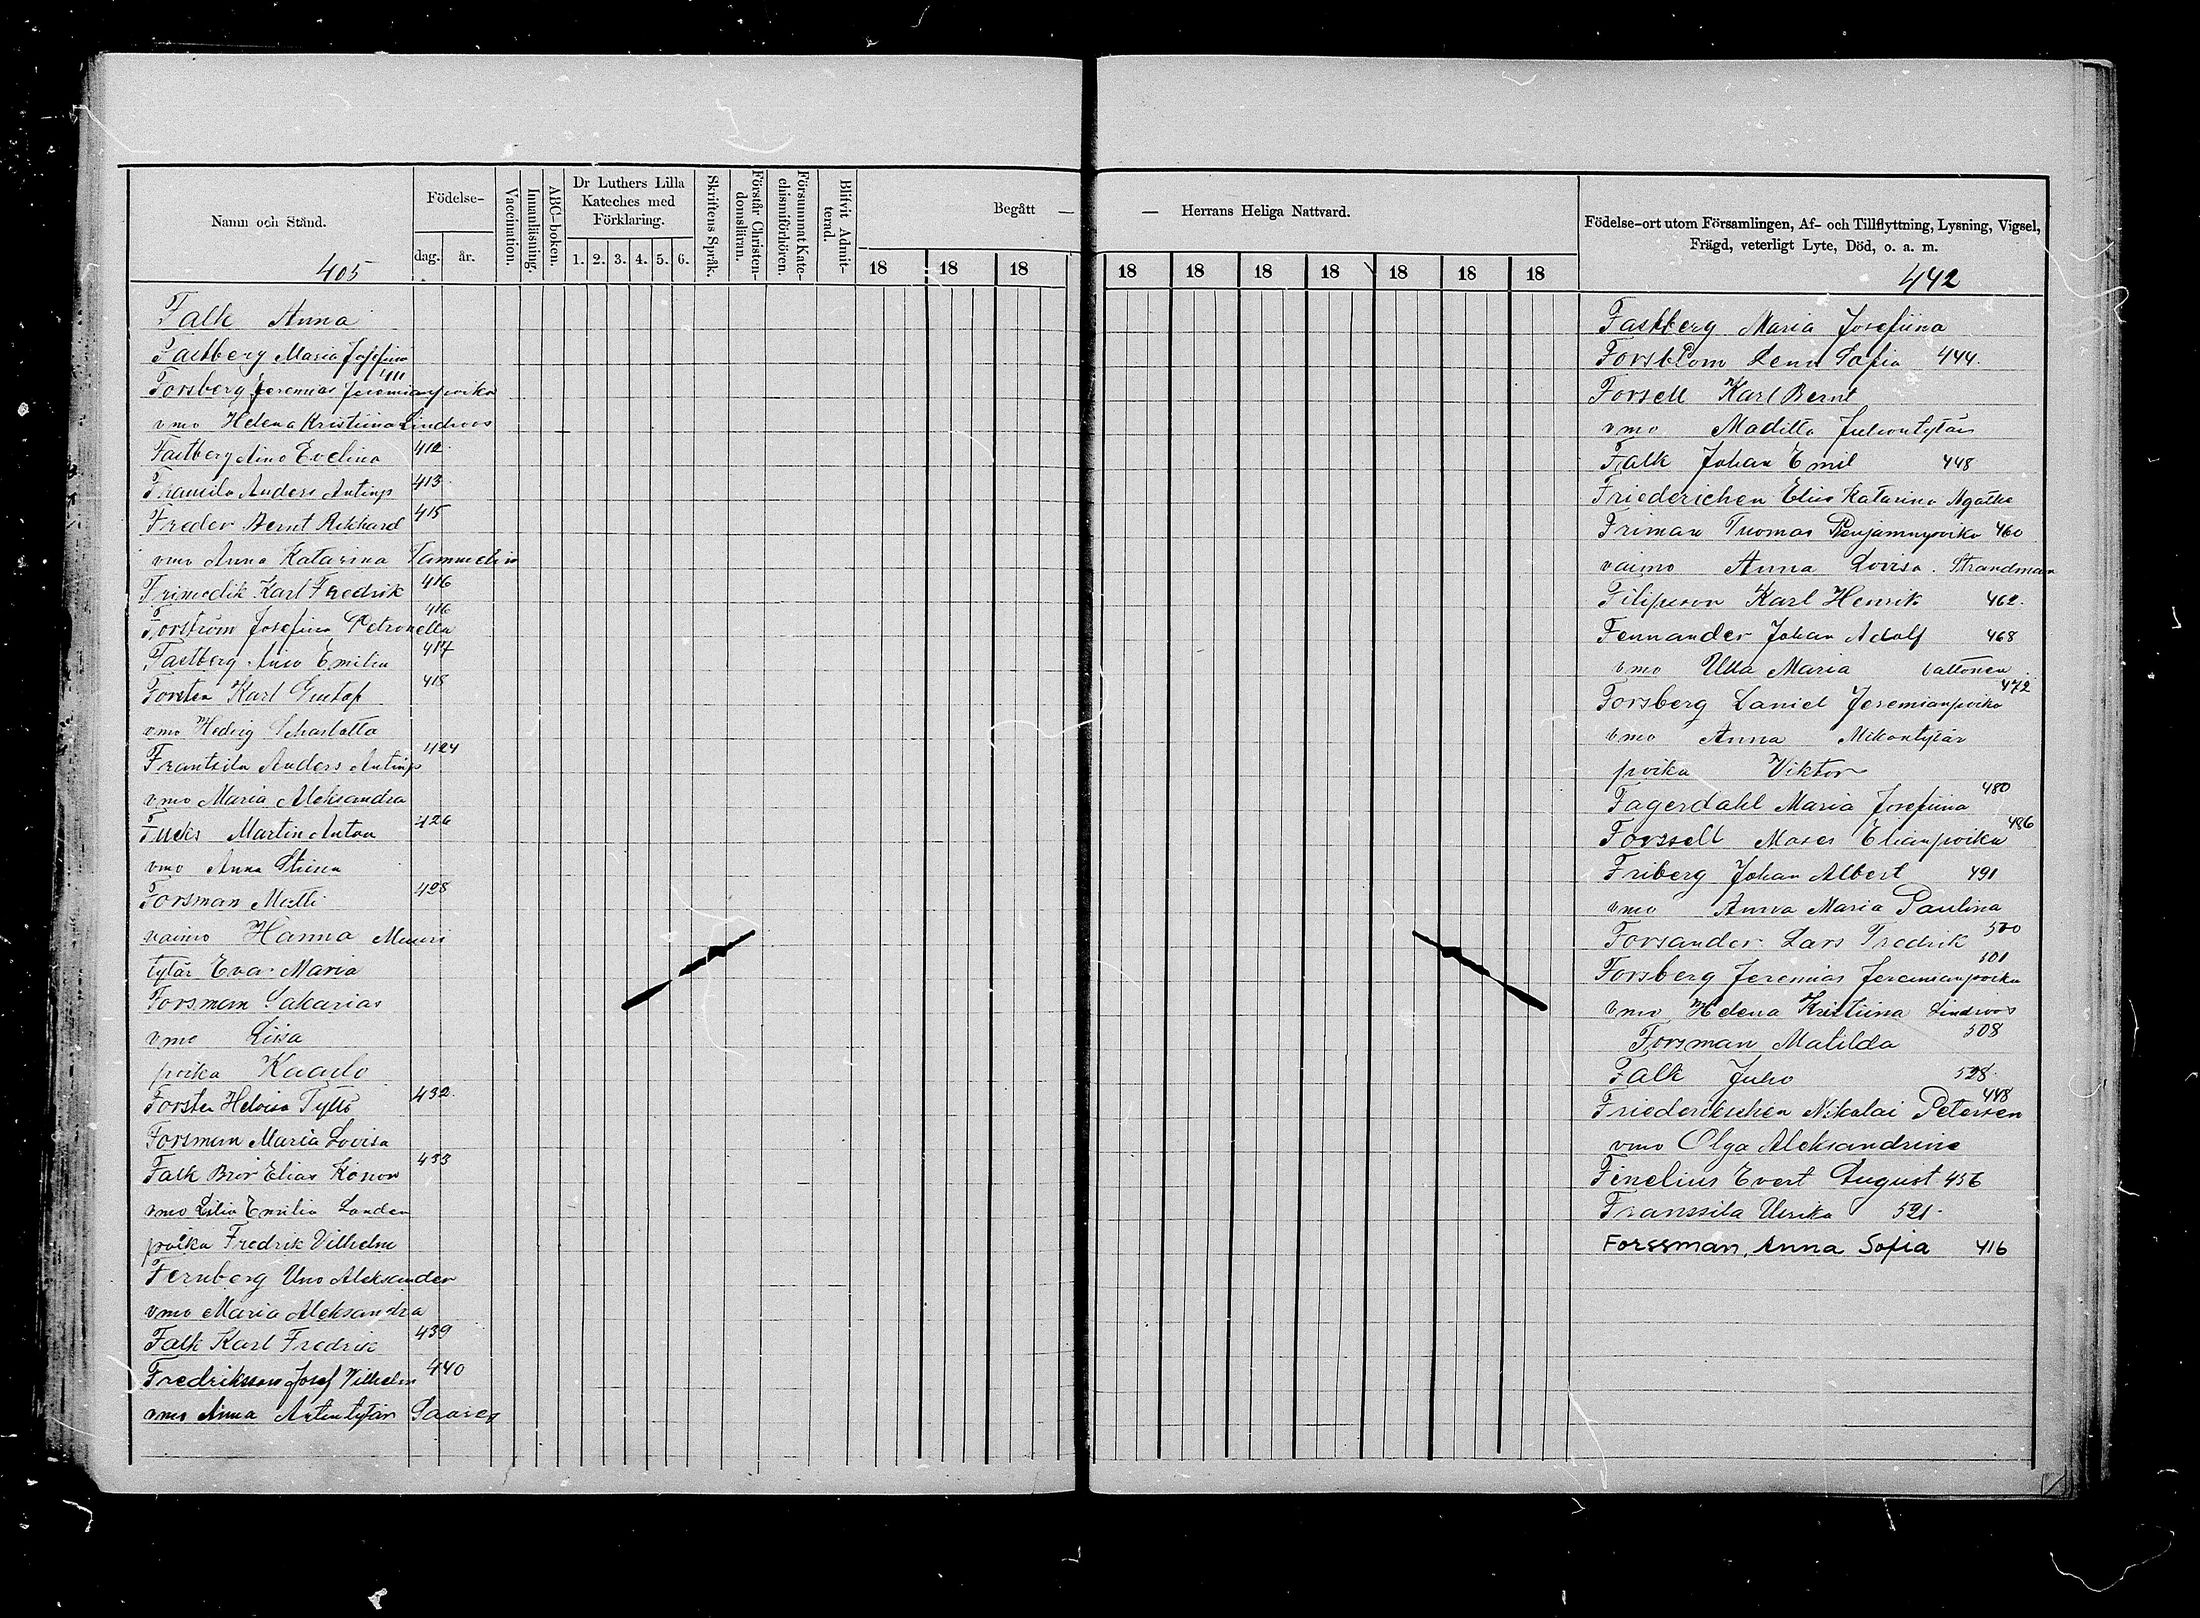 Namn och Stånd.
405
Födelse-
dag.
år.
Vaccination.
Innanläsning.
ABC-boken.
Dr Luthers Lilla
Kateches med
Förklaring.
1. 2. 3. 4. 5. 6.
Skriftens Språk.
Förstår Christen-
domsläran.
Försummat Kate-
chismiförhören.
Blifvit Admit-
terad.
Begått —
18 18 18
Falk Anna
Fastberg Maria Josefina
411
Forsberg Jeremias Jeremianpoika
vmo Helena Kristiina Lindroos
Fastberg Aino Evelina 412
Anders Antinp 413
Freder Bernt Rikhard 415
vmo Anna Katarina Tammelin
Karl Fredrik 416
Forström Josefina Petronella 416
Fastberg Aino Emilia 417
Forsten Karl Gustaf 418
vmo Hedvig Scharlotta
Frantsila Anders Antinp 424
vmo Maria Aleksandra
Fucks Martin Anton 426
vmo Anna Stiina
Forsman Matti 428
vaimo Hanna Muuri
tytär Eva Maria
Forsman Sakarias
vmo Liisa
poika Kaarlo
Forsten Heloisa Tyttö 432
Forsman Maria Lovisa
Falk Bror Elias Konon 433
vmo Lilia Emilia Landen
poika Fredrik Vilhelm
Fernberg Uno Aleksander
vmo Maria Aleksandra
Falk Karl Fredrik 439
Fredriksson Josef Vilhelm 440
vmo Anna Antintytär Saares
— Herrans Heliga Nattvard.
18 18 18 18 18 18 18
Födelse-ort utom Församlingen, Af- och Tillflyttning, Lysning, Vigsel,
Frägd, veterligt Lyte, Död, o. a. m.
442
Fastberg Maria Josefiina
Forsblom Lena Sofia 444.
Forsell Karl Bernt
vmo Maditta Juhontytär
Falk Johan Emil 448
Friederichen Elise Katarina Agathe
Friman Tuomas Penjaminpoika 460
vaimo Anna Lovisa Strandman
Filipsson Karl Henrik 462.
Fennander Johan Adolf 468
vmo Ulla Maria Valtonen
Forsberg Daniel Jeremianpoika 472
vmo Anna Mikontytär
poika Viktor
Fagerdahl Maria Josefiina 480
Forssell Moses Elianpoika 486
Friberg Johan Albert 491
vmo Anna Maria Paulina
Forsander Lars Fredrik 500
Forsberg Jeremias Jeremianpoika 501
vmo Helena Kristiina Lindroos
Forsman Matilda 508
Falk Juho 528.
Friederikschen Nikolai Petersen 448
vmo Olga Aleksandrine
Finelius Evert August 456
Franssila Ulrika 521.
Forssman, Anna Sofia 416